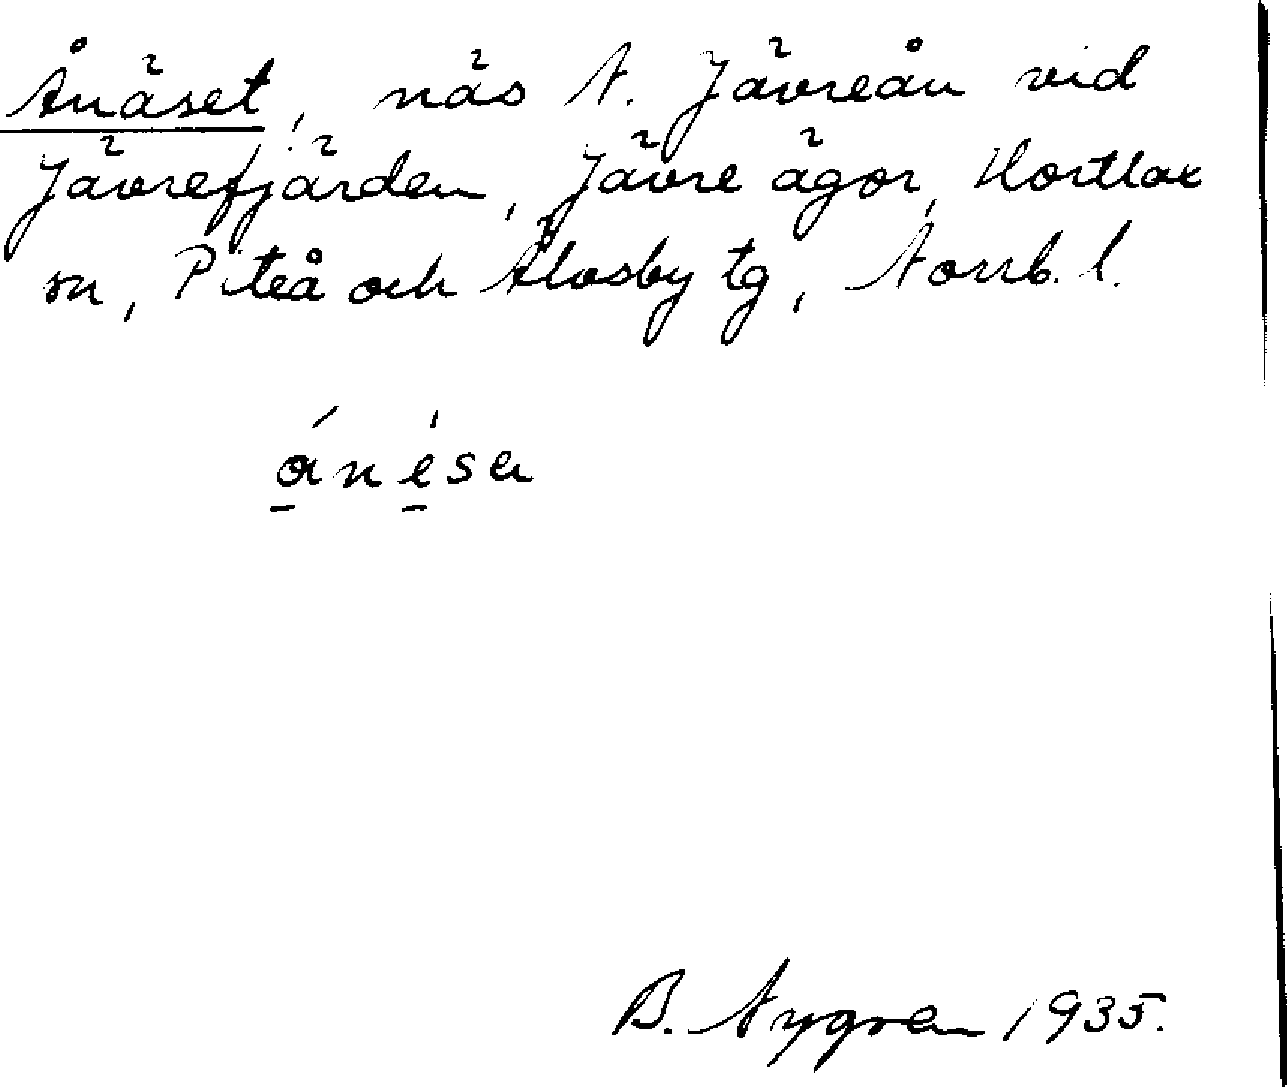 Ånäset, näs N. Jävreån vid
Jävrefjärden, Jävre ägor, Hortlax
sn, Piteå och Älvsby tg, Norrb. l.
ánésa
B. Nygren 1935.